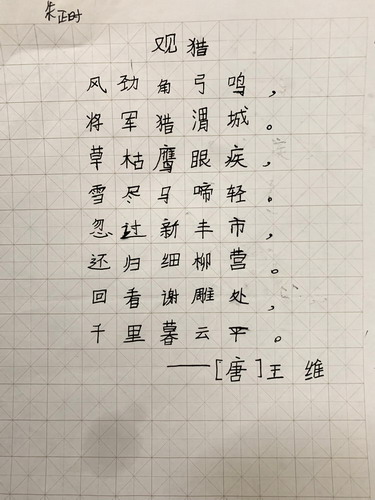 朱正时
观猎
风劲角弓鸣，
将军猎渭城。
草枯鹰眼疾，
雪尽马啼轻。
忽过新丰市，
还归细柳营。
回看谢雕处，
千里暮云平。
——[唐]王维